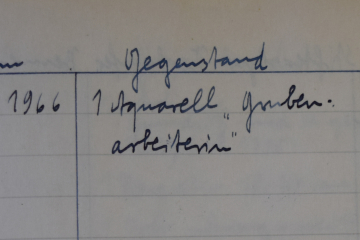 Gegenstand
1966 1 Aquarell „Gruben-
arbeiterin"